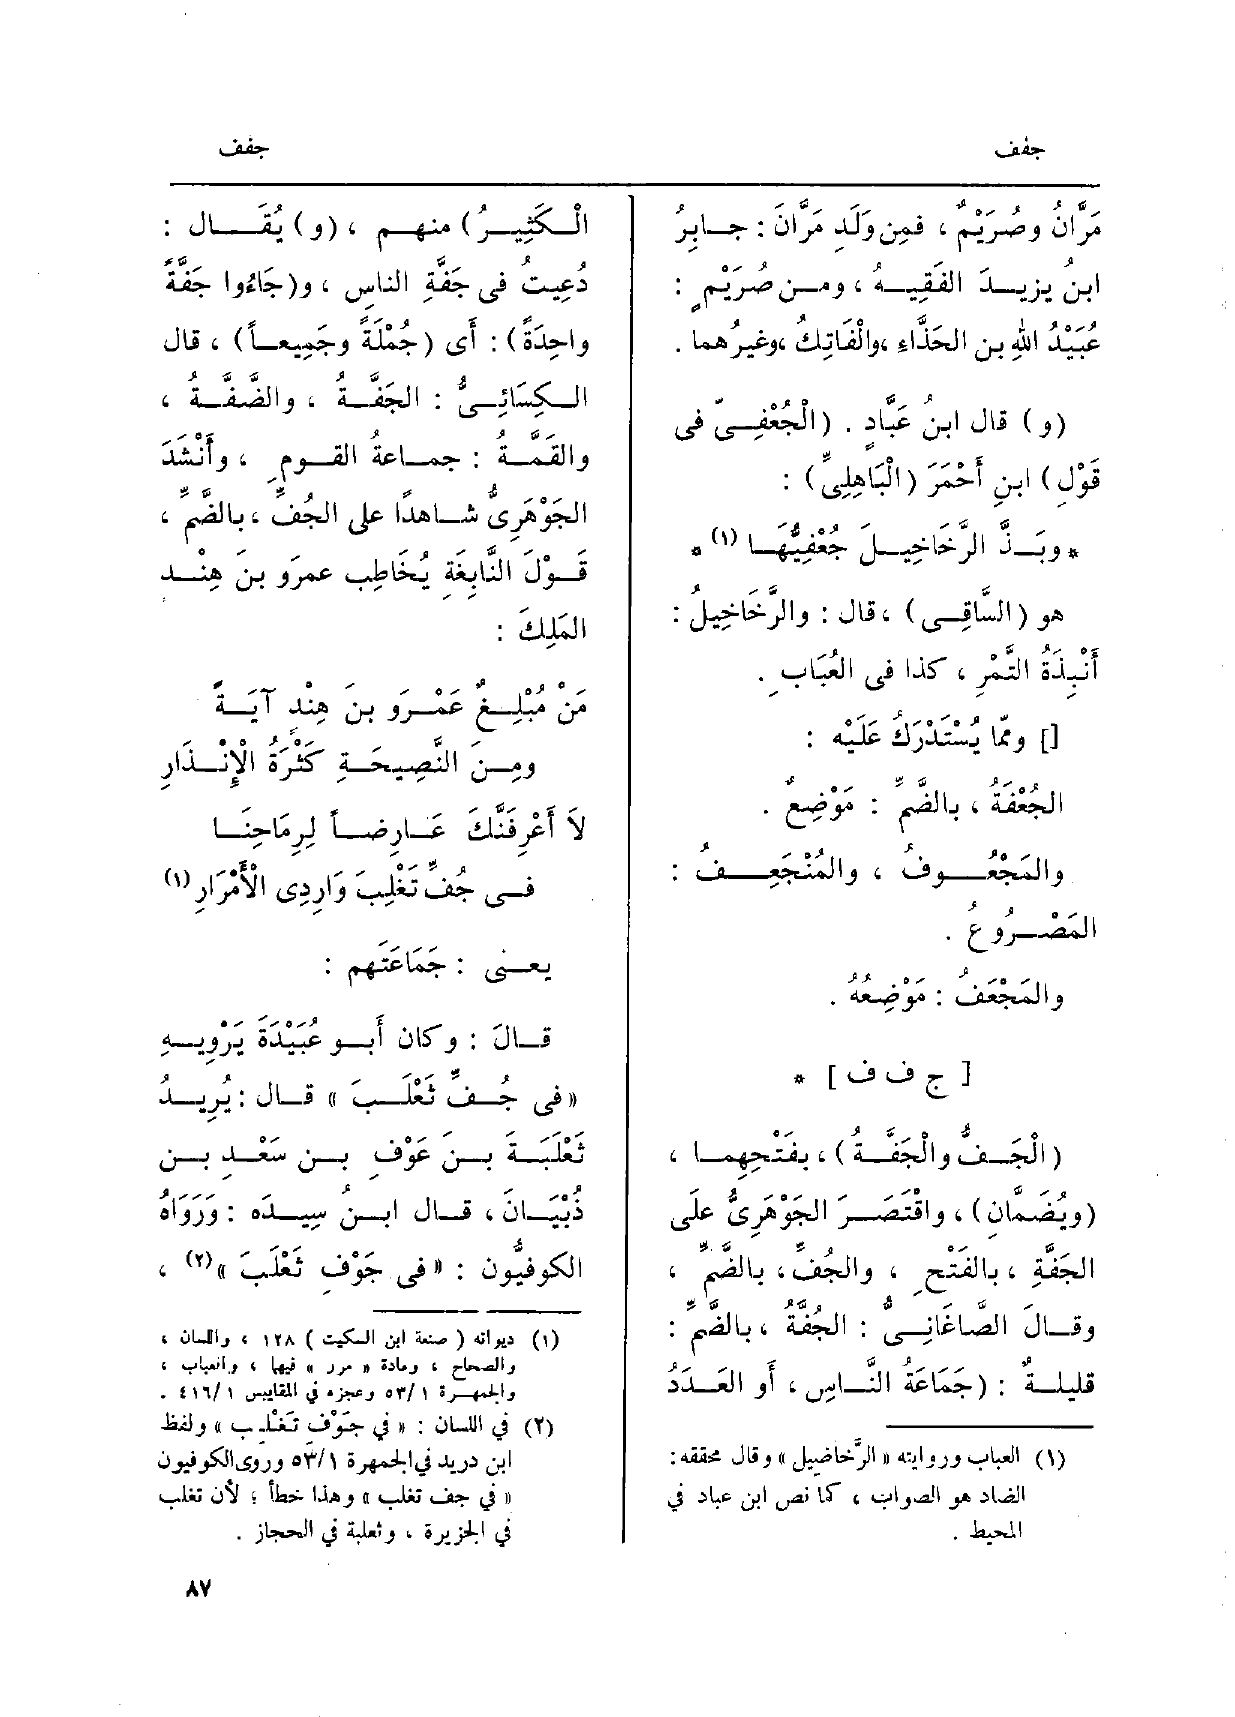 جفف
جفف
مَرَّانُ وصُرَيْمٌ ، فمِن وَلَدِ مَرَّانَ : جـابِرُ
ابنُ يزيـدَ الفَقِيـهُ ، ومـن صُرَيْمٍ :
عُبَيْدُ اللهِ بن الحَذَّاءِ ،والْفَاتِكُ ،وغيرُهما .
(و) قال ابنُ عَبَّادٍ . (الْجُعْفِـىّ فى
قَوْلِ) ابنِ أَحْمَرَ (الْبَاهِلِىِّ) :
* وبَـذَّ الرَّخَاخِيـلَ جُعْفِيُّهَـا (١) *
هو (السَّاقِـى) ، قال : والرَّخَاخِيلُ :
أَنْبِذَةُ التَّمْرِ ، كذا فى العُبَابِ .
[] وممّا يُسْتَدْرَكُ عَلَيْه :
الجُعْفَةُ ، بالضَّمِّ : مَوْضِعٌ .
والمَجْعُـوفُ ، والمُنْجَعِـفُ :
المَصْـرُوعُ .
والمَجْعَفُ : مَوْضِعُهُ .
[ ج ف ف ] *
(الْجَـفُّ والْجَفَّـةُ) ، بفَتْحِهِمـا ،
(ويُضَمَّان) ، واقْتَصَـرَ الجَوْهَرِىُّ علَى
الجَفَّةِ ، بالفَتْحِ ، والجُفِّ ، بالضَّمِّ ،
وقـالَ الصَّاغَانِـىُّ : الجُفَّةُ ، بالضَّمِّ :
قليلـةٌ : (جَمَاعَةُ النَّـاسِ ، أَو العَـدَدُ
(١) العباب وروايته « الرَّخاضيل » وقال محققه :
الضاد هو الصواب ، كما نص ابن عباد في
المحيط .
الْـكَثِيـرُ) منهـم ، (و) يُقَـال :
دُعِيتُ فى جَفَّةِ الناسِ ، و(جَاءُوا جَفَّةً
واحِدَةً) : أَى (جُمْلَةً وجَمِيعـاً) ، قال
الـكِسَائِـىُّ : الجَفَّـةُ ، والضَّفَّـةُ ،
والقَمَّـةُ : جمـاعةُ القـومِ ، وأَنْشَدَ
الجَوْهَرِىُّ شـاهدًا على الجُفِّ ، بالضَّمِّ ،
قَـوْلَ النَّابِغَةِ يُخَاطِب عمرَو بنَ هِنْـد
المَلِكَ :
مَنْ مُبْلِـغٌ عَمْـرَو بنَ هِنْدٍ آيَـةً
ومِـنَ النَّصِيحَـةِ كَثْرَةُ الْإِنْـذَارِ
لاَ أَعْرِفَنَّكَ عَـارِضـاً لِرِمَاحِنَـا
فـى جُفِّ تَغْلِبَ وَارِدِى الْأَمْرَارِ (١)
يعـنى : جَمَاعَتَهم :
قـالَ : وكان أَبـو عُبَيْدَةَ يَرْوِيـهِ
« فى جُـفِّ ثَعْلَـبَ » قـال : يُرِيـدُ
ثَعْلَبَـةَ بـنَ عَوْفِ بـن سَعْـد بـن
ذُبْيَـانَ ، قـال ابـنُ سِيـدَه : وَرَوَاهُ
الكوفيُّون : « فى جَوْفِ ثَعْلَبَ »(٢) ،
(١) ديوانه ( صنعة ابن السكيت ) ١٢٨ ، واللسان ،
والصحاح ، ومادة « مرر » فيها ، والعباب ،
والجمهـرة ١/٥٣ وعجزه في المقاييس ١/٤١٦ .
(٢) في اللسان : « في جَوْفِ تَغْلِب » ولفظ
ابن دريد في الجمهرة ١/٥٣ وروى الكوفيون
« في جف تغلب » وهذا خطأ ؛ لأن تغلب
في الجزيرة ، وثعلبة في الحجاز .
٨٧